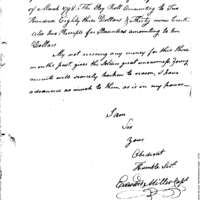 of March 1798. The Pay Roll Amounting to Two
Hundred Eighty three Dollars & Thirty nine Cents
also two Receipts for Bounties amounting to ten
Dollars
My not receiving any money for this three
months past, gives the Soldiers great uneasiness, Young
recruits will scarcely harken to reason, I have
advanced as much to them as is in my power.
I am
Sir
Your
Obedient
Humble Servt.
Edward Miller Capt.